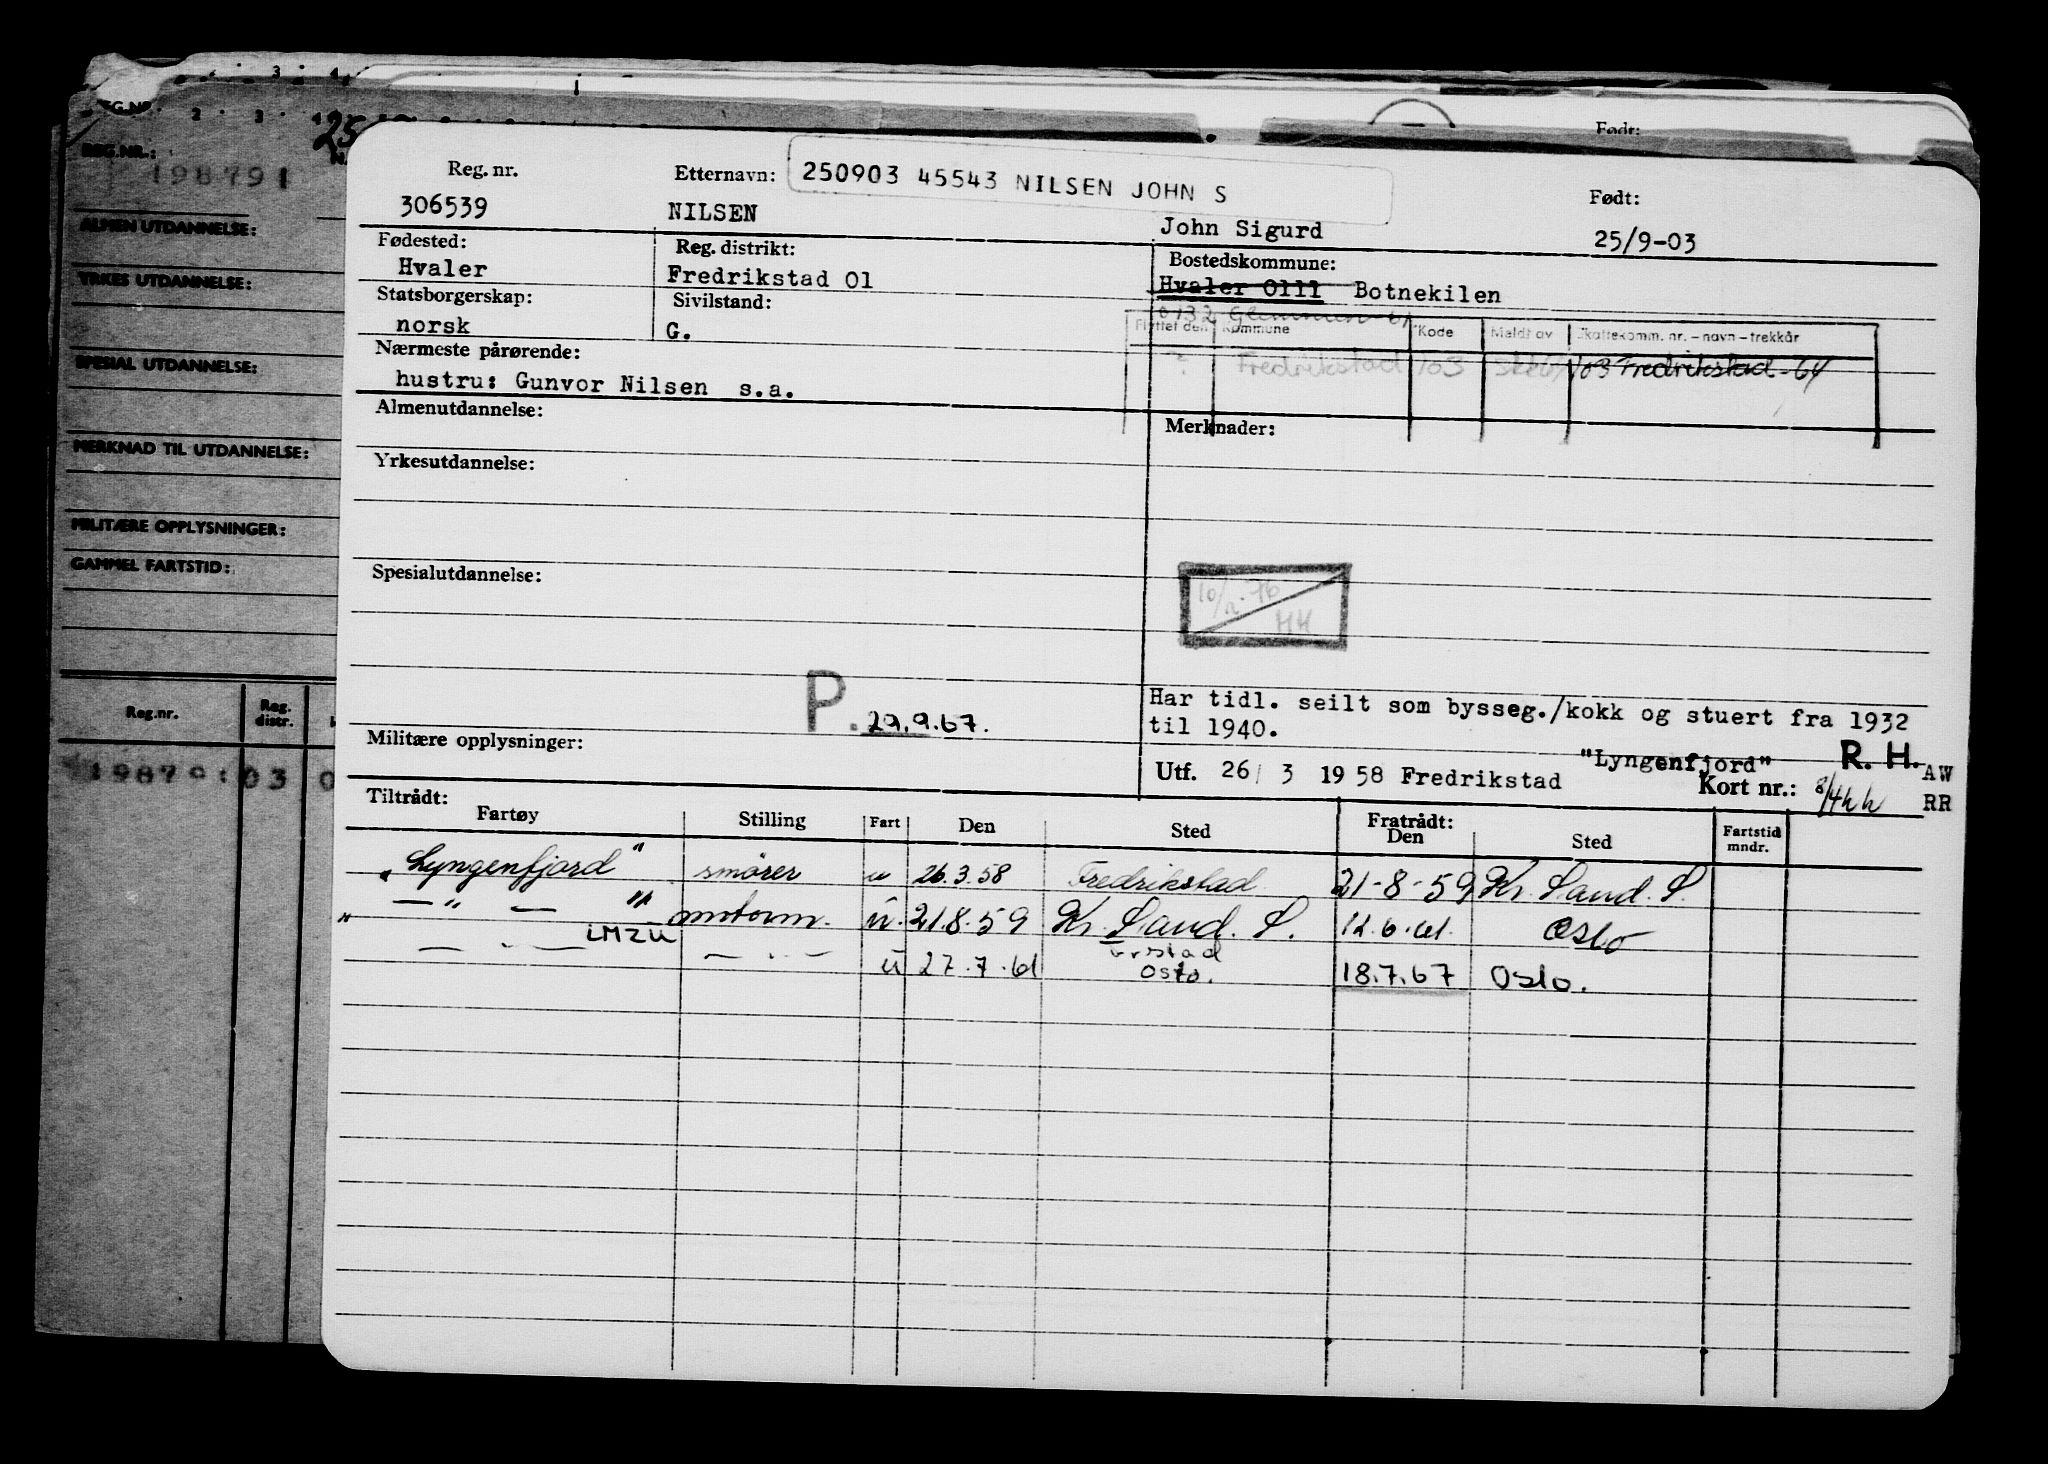 REG.NR.:
198791
ALMEN UTDANNELSE:
YRKES UTDANNELSE:
SPESIAL UTDANNELSE:
MERKNAD TIL UTDANNELSE:
MILITÆRE OPPLYSNINGER:
GAMMEL FARTSTID:
Reg.nr. Reg. distr.
Født:
Reg. nr. Etternavn: 250903 45543 NILSEN JOHN S Født:
306539 NILSEN John Sigurd 25/9-03
Fødested: Reg. distrikt: Bostedskommune:
Hvaler Fredrikstad 01 Hvaler 0111 Botnekilen
Statsborgerskap: Sivilstand: 0132 Glemmen-61
norsk G.
Flyttet den Kommune Kode Meldt av Skattekomm. nr. – navn – trekkår
? Fredrikstad 103 103 Fredrikstad - 64
Nærmeste pårørende:
hustru: Gunvor Nilsen s.a.
Almenutdannelse: Merknader:
Yrkesutdannelse:
Spesialutdannelse:
HH
P. 29.9.67.
Har tidl. seilt som bysseg./kokk og stuert fra 1932
til 1940.
Militære opplysninger:
"Lyngenfjord" R. H. AW
Utf. 26/3 1958 Fredrikstad Kort nr.: RR
Tiltrådt: Fratrådt:
Fartøy Stilling Fart Den Sted Den Sted Fartstid mndr.
"Lyngenfjord" smører u 26.3.58 Fredrikstad 21-8-59 Kr. Sand. S.
" — " — " motorm. u. 21.8.59 Kr. Sand. S. 12.6.61. Oslo
LMZU
— " — — " — u 27.7.61 Oslo. 18.7.67 Oslo.